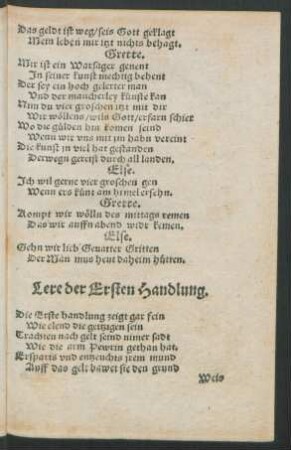 Das geldt ist weg/seis Gott geklagt
Mein leben mir itzt nichts behagt.
Grette.
Mir ist ein Warsager genent
In seiner kunst mechtig behent
Der sey ein hoch gelerter man
Vnd der mancherley künste kan
Nim du vier groschen itzt mit dir
Wir wöllens/wils Gott/erfarn schier
Wo die gülden hin komen seind
Wenn wir vns mit im habn vereint
Die kunst in viel hat gestanden
Derwegn gereist durch all landen.
Else.
Ich wil gerne vier groschen gen
Wenn ers künt am himel ersehn.
Grette.
Kompt wir wölln des mittags remen
Das wir auffn abend widr kemen.
Else.
Gehn wir lieb Geuatter Gritten
Der Man mus heut daheim hütten.
Lere der Ersten Handlung.
Die Erste handlung zeigt gar fein
Wie elend die geitzigen sein
Trachten nach gelt seind nimer sadt
Wie die arm Pewrin gethan hat.
Ersparts vnd entzeuchts irem mund
Auff das gelt bawet sie den grund
Weis